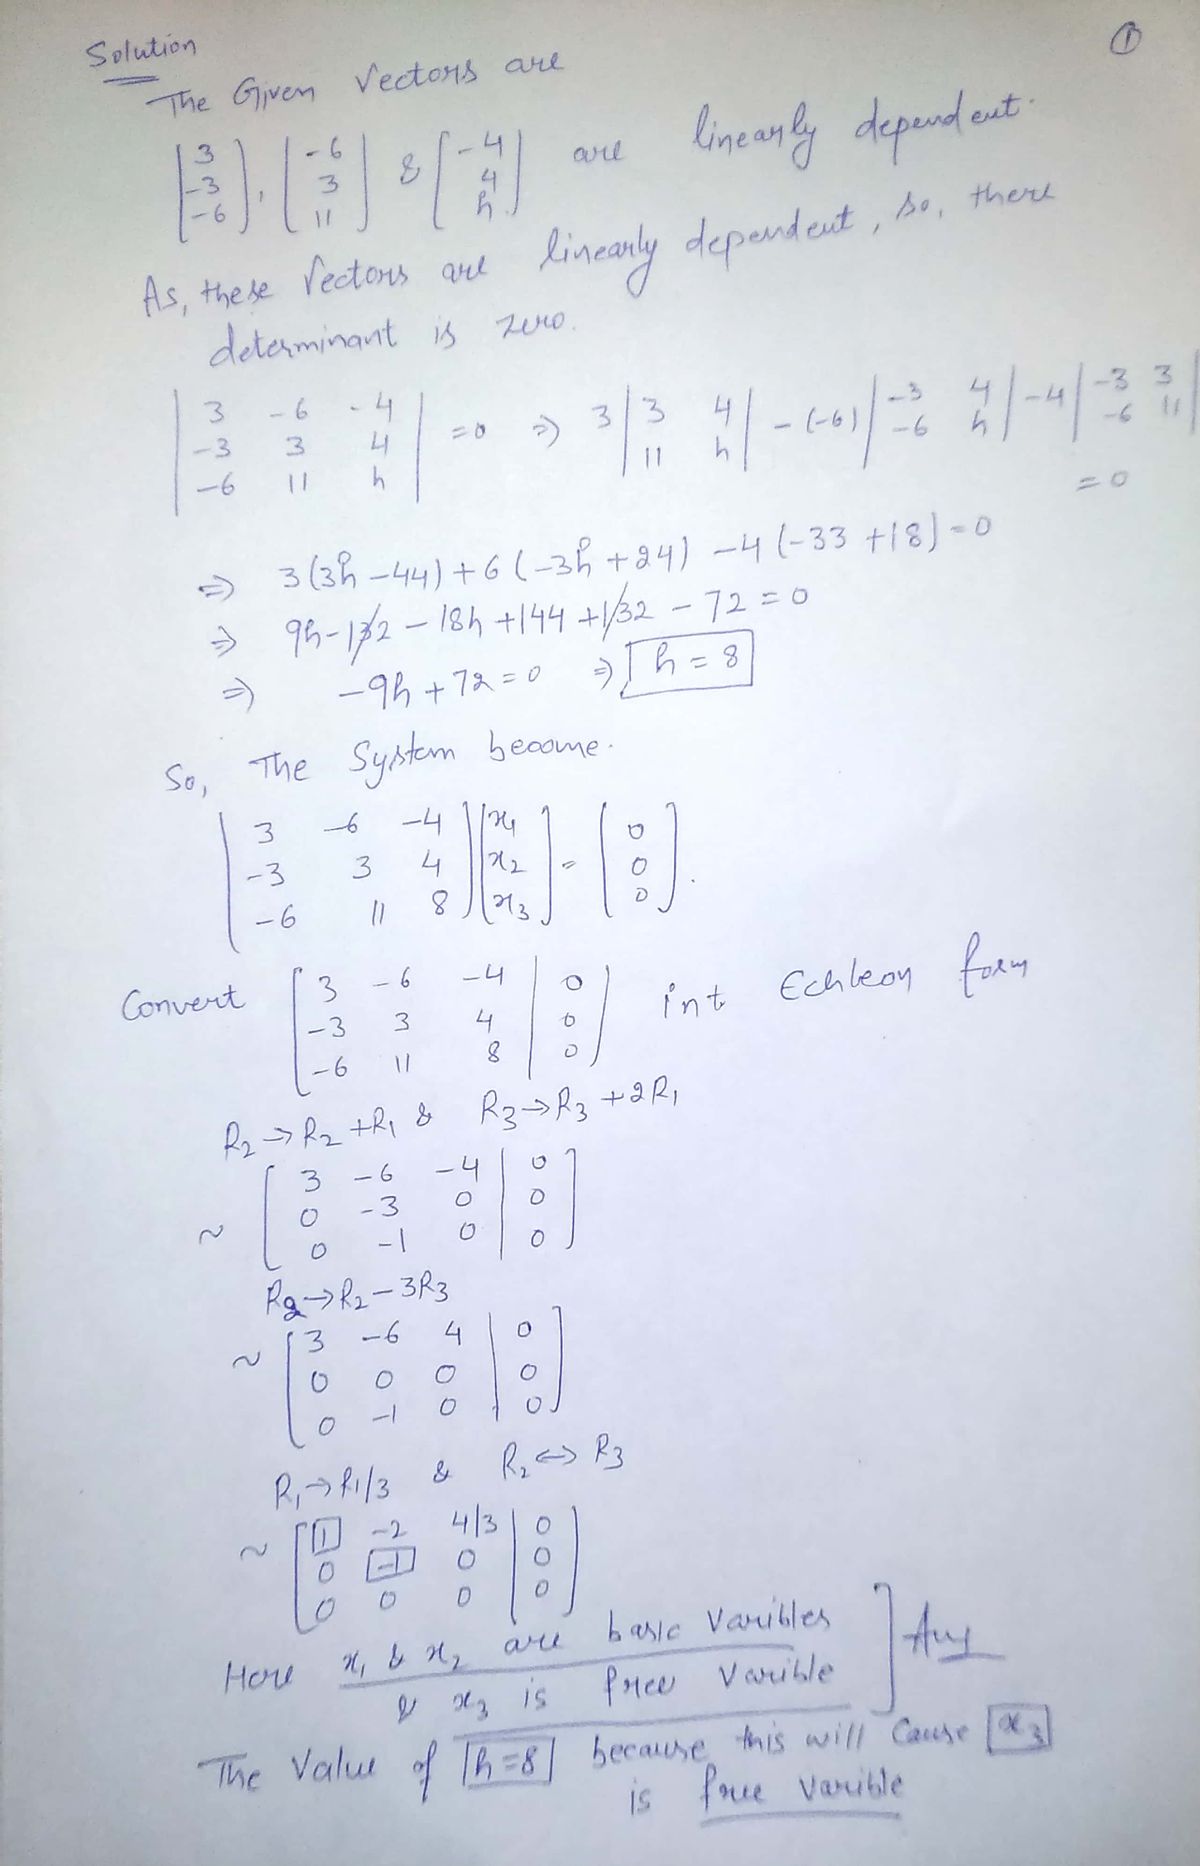 ①
Solution
The Given Vectors are
[3 -3 -6], [-6 3 11] & [-4 4 h] are linearly dependent.
As, these Vectors are linearly dependent, so, there
determinant is zero.
| 3 -6 -4 |
| -3 3 4 | = 0 ⇒ 3 | 3 4 | - (-6) | -3 4 | - 4 | -3 3 |
| -6 11 h | | 11 h | | -6 h | | -6 11 |
= 0
⇒ 3(3h - 44) + 6(-3h + 24) - 4(-33 + 18) = 0
⇒ 9h - 132 - 18h + 144 + 132 - 72 = 0
⇒ -9h + 72 = 0 ⇒ h = 8
So, The System become.
[ 3 -6 -4 ] [ x1 ] [ 0 ]
[ -3 3 4 ] [ x2 ] = [ 0 ].
[ -6 11 8 ] [ x3 ] [ 0 ]
Convert [ 3 -6 -4 | 0 ] int Echleon form
[ -3 3 4 | 0 ]
[ -6 11 8 | 0 ]
R2 → R2 + R1 & R3 → R3 + 2R1
~ [ 3 -6 -4 | 0 ]
[ 0 -3 0 | 0 ]
[ 0 -1 0 | 0 ]
R2 → R2 - 3R3
~ [ 3 -6 4 | 0 ]
[ 0 0 0 | 0 ]
[ 0 -1 0 | 0 ]
R1 → R1/3 & R2 ↔ R3
~ [ 1 -2 4/3 | 0 ]
[ 0 -1 0 | 0 ]
[ 0 0 0 | 0 ]
Here x1 & x2 are basic Varibles
& x3 is free Varible ] Ans
The Value of h=8 because this will Cause x3
is free varible